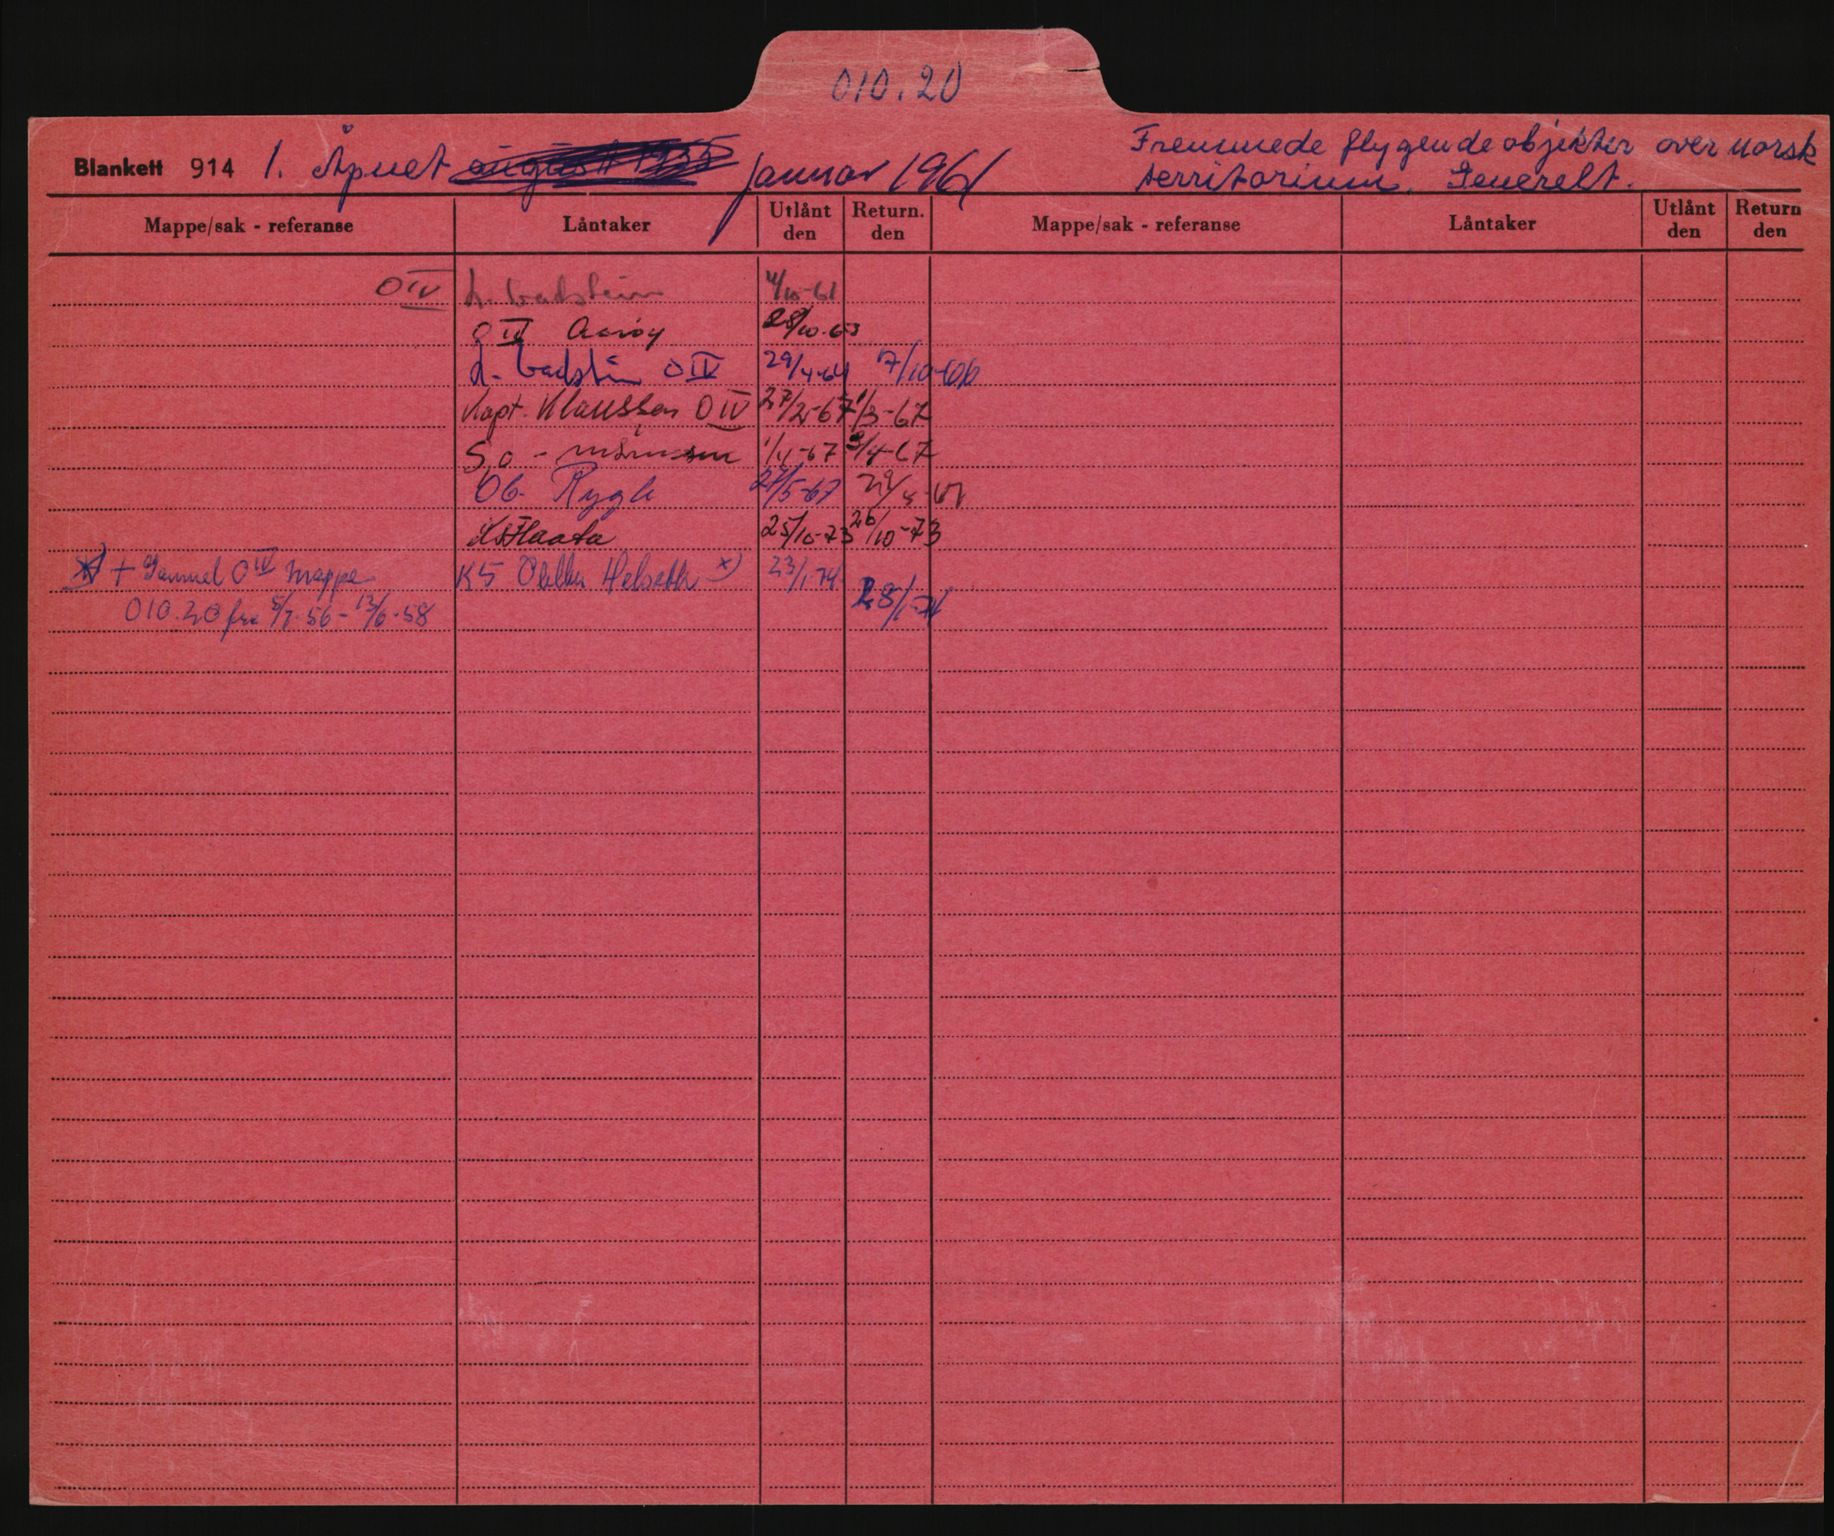 010.20
Blankett 914 1. Åpnet januar 1961
Fremmede flygende objekter over norsk
territorium. Generelt.
Mappe/sak - referanse Låntaker Utlånt den Return. den Mappe/sak - referanse Låntaker Utlånt den Return den
O IV L. 4/10-61
O IV 28/10-63
L. O IV 29/4-64 7/10-66
Kapt. Klaussen O IV 27/2-67 1/3-67
1/4-67 3/4-67
Ob. Rygh 27/5-67
Flaata 25/10-73 26/10-73
x) + Gammel O IV mappe K5 Helseth x) 23/1-74
010.20 fra 5/7-56 - 13/6-58 28/1-74